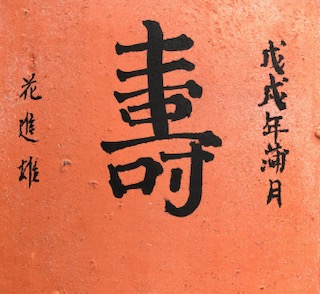 戊戌年蒲月
壽
花進雄